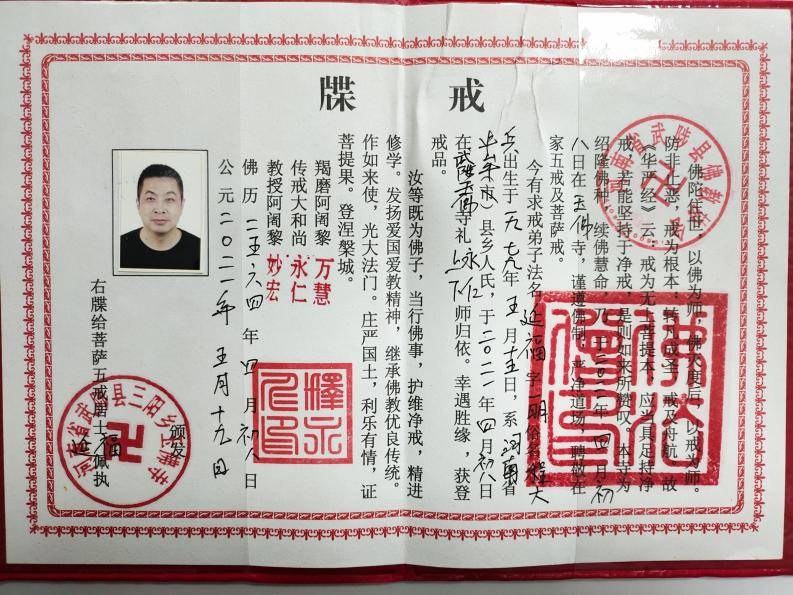 戒牒
佛陀住世，以佛为师。佛灭度后，以戒为师。
防非止恶，戒为根本：转凡成圣，戒及舟航。故
《华严经》云：戒为无上菩提本，应当具足持净
戒。若能坚持于净戒，是则如来所赞叹。本寺为
绍隆佛种，续佛慧命，乃二〇二一年四月初
八日在玉佛寺，谨遵佛制，严净道场，聘做在
家五戒及菩萨戒。
今有求戒弟子法名延福字一明俗名程大
兵出生于一九七九年五月十五日，系河南省
市县乡人氏，于二〇二一年四月初八日
在寺礼上永下仁师归依。幸遇胜缘，获登
戒品。
汝等既为佛子，当行佛事，护维净戒，精进
修学。发扬爱国爱教精神，继承佛教优良传统。
作如来使，光大法门。庄严国土，利乐有情，证
菩提果。登涅槃城。
羯磨阿阇黎 万慧
传戒大和尚 永仁
教授阿阇黎 妙宏
佛历二五六四年四月初八日
公元二〇二一年五月十九日
右牒给菩萨五戒居士延福佩执
颁发